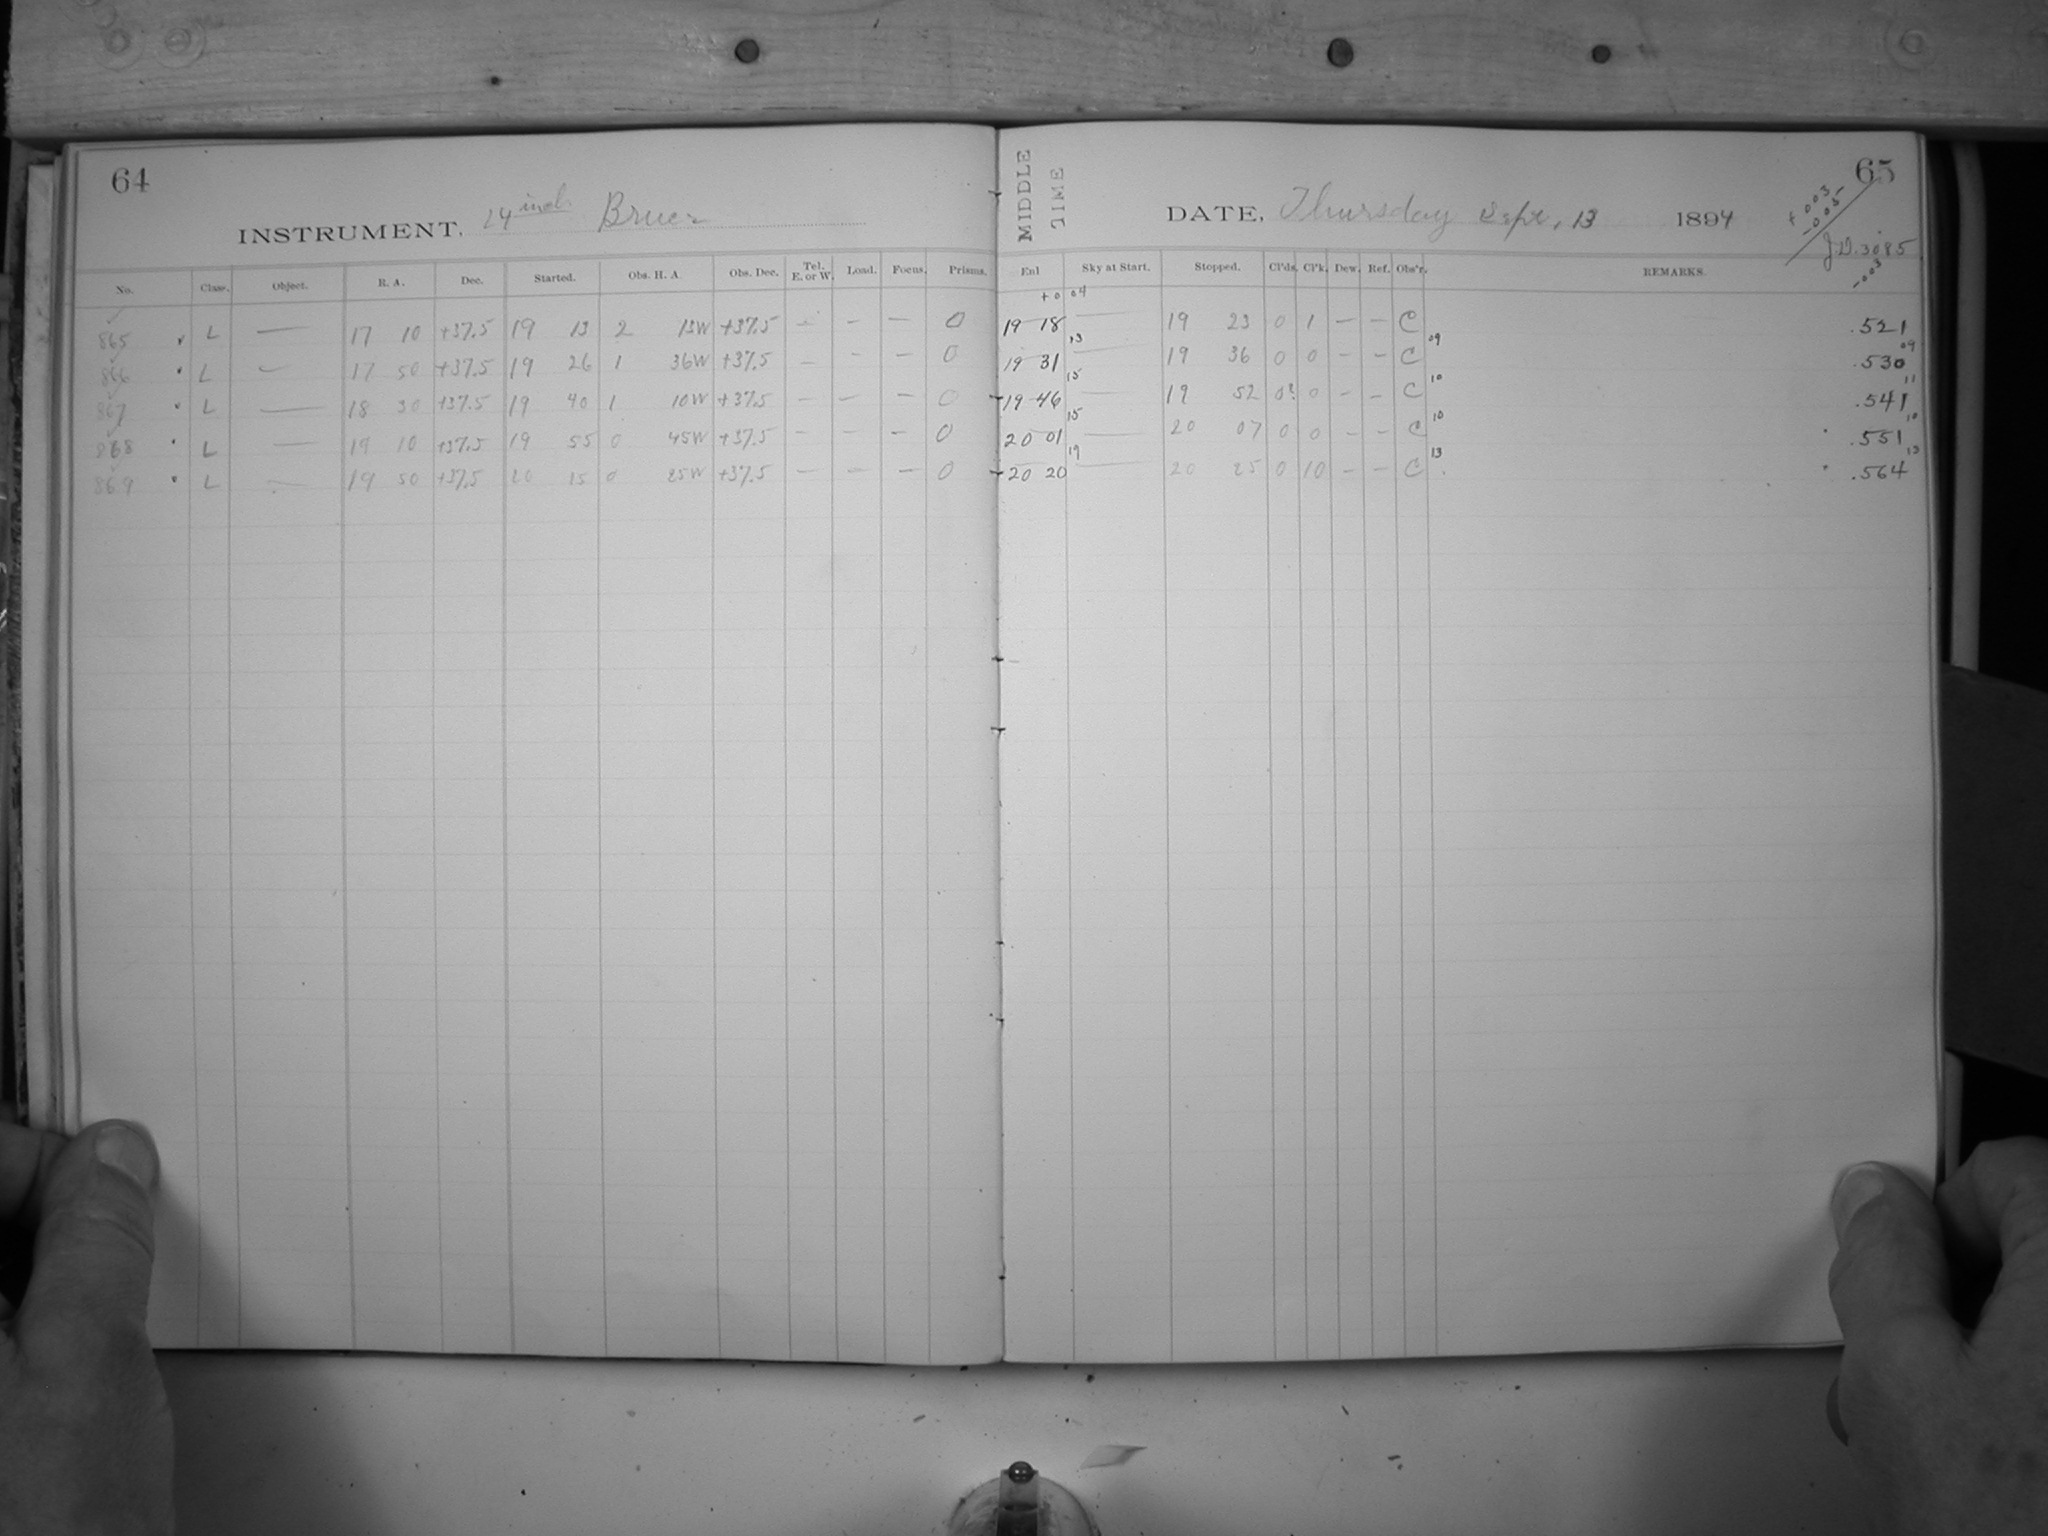 64
INSTRUMENT, 24 inch Bruce
No. Class. Object. R. A. Dec. Started. Obs. H. A. Obs. Dec. Tel. E. or W. Load. Focus. Prisms.
865 L — 17 10 +37.5 19 13 2 13W +37.5 — — — 0
866 L — 17 50 +37.5 19 26 1 36W +37.5 — — — 0
867 L — 18 30 +37.5 19 40 1 10W +37.5 — — — 0
868 L — 19 10 +37.5 19 55 0 45W +37.5 — — — 0
869 L — 19 50 +37.5 20 15 0 25W +37.5 — — — 0
65
MIDDLE TIME
DATE, Thursday Sept. 13 1894
+003
-005
J.D. 3085
-003
Enl Sky at Start. Stopped. Cl'ds. Cl'k. Dew. Ref. Obs'r. REMARKS.
+0 04
19 18 — 19 23 0 1 — — C .521
13 09 09
19 31 — 19 36 0 0 — — C .530
15 10 11
19 46 — 19 52 0? 0 — — C .541
15 10 10
20 01 — 20 07 0 0 — — C .551
19 13 13
20 20 — 20 25 0 10 — — C .564